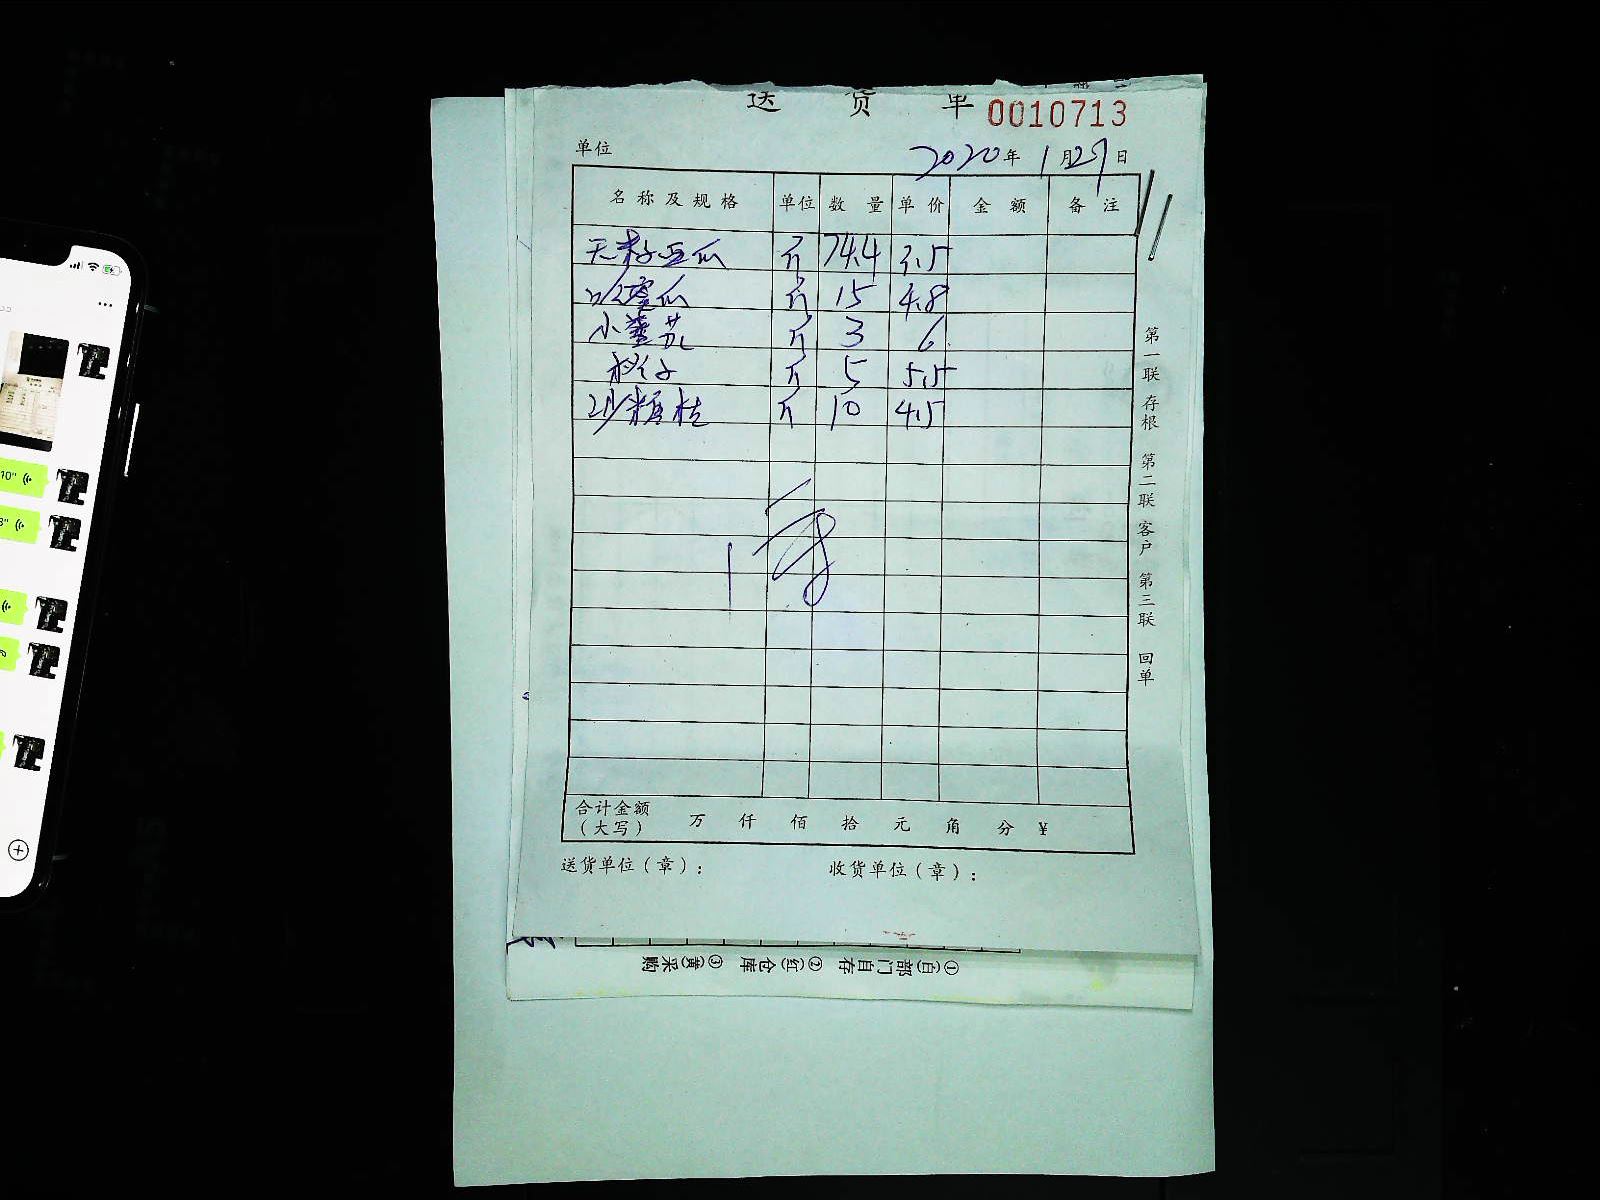 送 货 单 0010713
单位 2020年 1月29日
名称及规格 单位 数量 单价 金额 备注
无籽西瓜 斤 74.4 3.5
哈密瓜 斤 15 4.8
小番茄 斤 3 6
斤 5 5.5
沙糖桔 斤 10 4.5
第一联 存根 第二联 客户 第三联 回单
合计金额
(大写) 万 仟 佰 拾 元 角 分 ¥
送货单位(章): 收货单位(章):
①(白)部门自存 ②(红)仓库 ③(黄)采购
10"